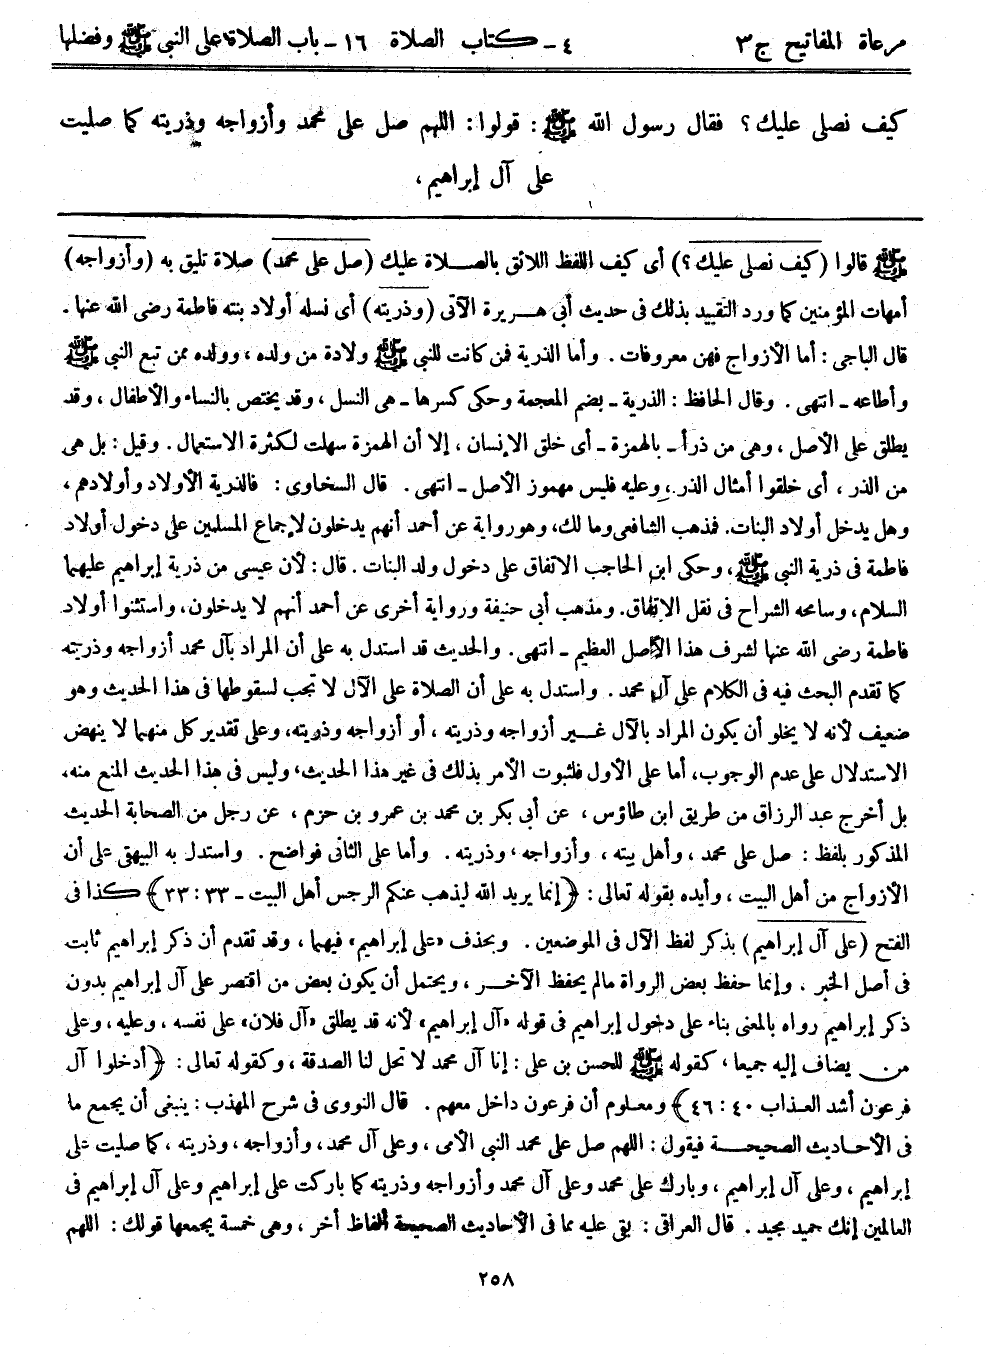 مرعاة المفاتيح ج ٣ ٤ - كتاب الصلاة ١٦ - باب الصلاة على النبي ﷺ وفضلها
كيف نصلى عليك؟ فقال رسول الله ﷺ: قولوا: اللهم صل على محمد وأزواجه وذريته كما صليت
على آل إبراهيم،
ﷺ قالوا (كيف نصلى عليك؟) أى كيف اللفظ اللائق بالصلاة عليك (صل على محمد) صلاة تليق به (وأزواجه)
أمهات المؤمنين كما ورد التقييد بذلك فى حديث أبى هريرة الآتى (وذريته) أى نسله أولاد بنته فاطمة رضى الله عنها.
قال الباجى: أما الأزواج فهن معروفات. وأما الذرية فمن كانت للنبى ﷺ ولادة من ولده، وولده ممن تبع النبى ﷺ
وأطاعه - انتهى. وقال الحافظ: الذرية - بضم المعجمة وحكى كسرها - هى النسل، وقد يختص بالنساء والأطفال، وقد
يطلق على الأصل، وهى من ذرأ - بالهمزة - أى خلق الإنسان، إلا أن الهمزة سهلت لكثرة الاستعمال. وقيل: بل هى
من الذر، أى خلقوا أمثال الذر، وعليه فليس مهموز الأصل - انتهى. قال السخاوى: فالذرية الأولاد وأولادهم،
وهل يدخل أولاد البنات. فمذهب الشافعى ومالك، وهو رواية عن أحمد أنهم يدخلون لإجماع المسلمين على دخول أولاد
فاطمة فى ذرية النبى ﷺ، وحكى ابن الحاجب الاتفاق على دخول ولد البنات. قال: لأن عيسى من ذرية إبراهيم عليهما
السلام، وسامحه الشراح فى نقل الاتفاق. ومذهب أبى حنيفة ورواية أخرى عن أحمد أنهم لا يدخلون، واستثنوا أولاد
فاطمة رضى الله عنها لشرف هذا الأصل العظيم - انتهى. والحديث قد استدل به على أن المراد بآل محمد أزواجه وذريته
كما تقدم البحث فيه فى الكلام على آل محمد. واستدل به على أن الصلاة على الآل لا تجب لسقوطها فى هذا الحديث وهو
ضعيف لأنه لا يخلو أن يكون المراد بالآل غير أزواجه وذريته، أو أزواجه وذريته، وعلى تقدير كل منهما لا ينهض
الاستدلال على عدم الوجوب، أما على الأول فلثبوت الأمر بذلك فى غير هذا الحديث، وليس فى هذا الحديث المنع منه،
بل أخرج عبد الرزاق من طريق ابن طاؤس، عن أبى بكر بن محمد بن عمرو بن حزم، عن رجل من الصحابة الحديث
المذكور بلفظ: صل على محمد، وأهل بيته، وأزواجه، وذريته. وأما على الثانى فواضح. واستدل به البيهقى على أن
الأزواج من أهل البيت، وأيده بقوله تعالى: ﴿إنما يريد الله ليذهب عنكم الرجس أهل البيت - ٣٣: ٣٣﴾ كذا فى
الفتح (على آل إبراهيم) بذكر لفظ الآل فى الموضعين. وبحذف «على إبراهيم» فيهما، وقد تقدم أن ذكر إبراهيم ثابت
فى أصل الخبر. وإنما حفظ بعض الرواة مالم يحفظ الآخر، ويحتمل أن يكون بعض من اقتصر على آل إبراهيم بدون
ذكر إبراهيم رواه بالمعنى بناء على دخول إبراهيم فى قوله «آل إبراهيم» لأنه قد يطلق «آل فلان» على نفسه، وعليه، وعلى
من يضاف إليه جميعا، كقوله ﷺ للحسن بن على: إنا آل محمد لا تحل لنا الصدقة، وكقوله تعالى: ﴿أدخلوا آل
فرعون أشد العذاب ٤٠: ٤٦﴾ ومعلوم أن فرعون داخل معهم. قال النووى فى شرح المهذب: ينبغى أن يجمع ما
فى الأحاديث الصحيحة فيقول: اللهم صل على محمد النبى الأمى، وعلى آل محمد، وأزواجه، وذريته، كما صليت على
إبراهيم، وعلى آل إبراهيم، وبارك على محمد وعلى آل محمد وأزواجه وذريته كما باركت على إبراهيم وعلى آل إبراهيم فى
العالمين إنك حميد مجيد. قال العراقى: بقى عليه مما فى الأحاديث الصحيحة ألفاظ أخر، وهى خمسة يجمعها قولك: اللهم
٢٥٨